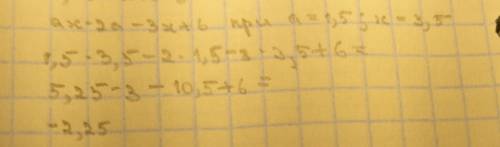 ax - 2a - 3x + 6 при a = 1,5 ; x = 3,5
1,5 · 3,5 - 2 · 1,5 - 3 · 3,5 + 6 =
5,25 - 3 - 10,5 + 6 =
-2,25